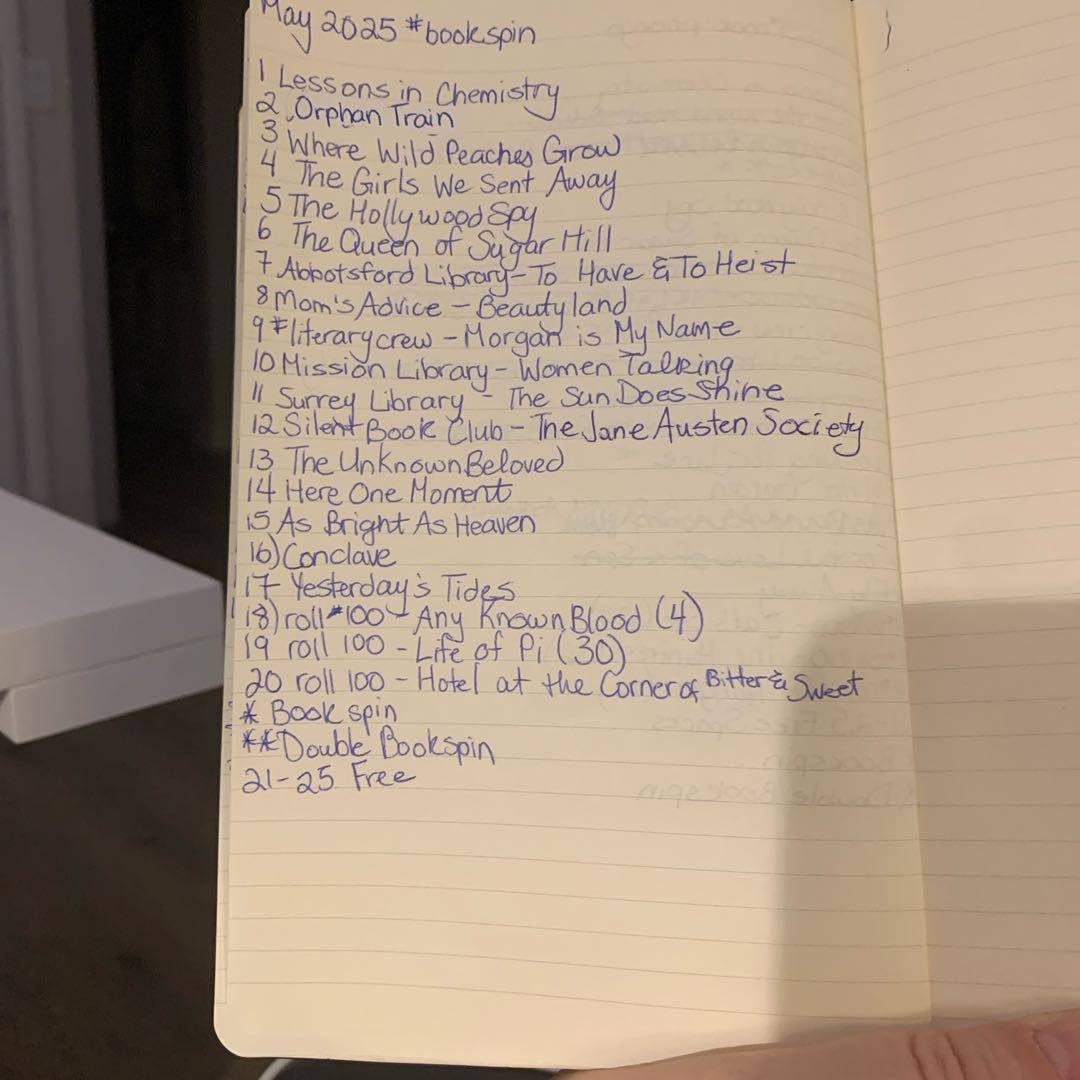 May 2025 #bookspin
1 Lessons in Chemistry
2 Orphan Train
3 Where Wild Peaches Grow
4 The Girls We Sent Away
5 The Hollywood Spy
6 The Queen of Sugar Hill
7 Abbotsford Library - To Have & To Heist
8 Mom's Advice - Beautyland
9 #literarycrew - Morgan is My Name
10 Mission Library - Women Talking
11 Surrey Library - The Sun Does Shine
12 Silent Book Club - The Jane Austen Society
13 The Unknown Beloved
14 Here One Moment
15 As Bright As Heaven
16) Conclave
17 Yesterday's Tides
18) roll #100 - Any Known Blood (4)
19 roll 100 - Life of Pi (30)
20 roll 100 - Hotel at the Corner of Bitter & Sweet
* Book spin
** Double Bookspin
21-25 Free